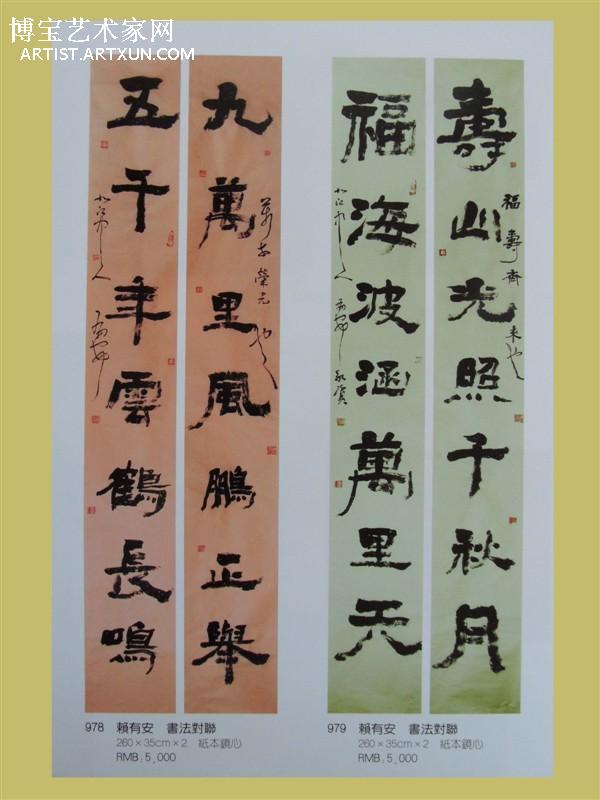 博宝艺术家网
ARTIST.ARTXUN.COM
九萬里風鵬正舉
五千年雲鶴長鳴
壽山光照千秋月
福海波涵萬里天
福壽齊来
978 賴有安 書法對聯
260×35cm×2 紙本鏡心
RMB: 5,000
979 賴有安 書法對聯
260×35cm×2 紙本鏡心
RMB: 5,000